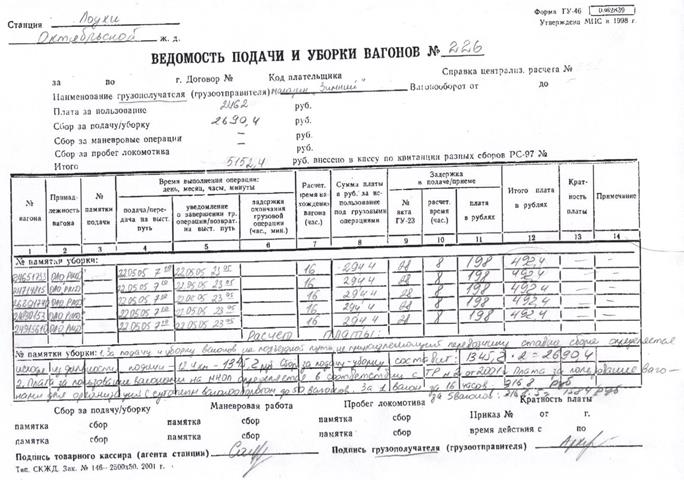 Форма ГУ-46
Утверждена МПС в 1998 г.
Станция Лоухи
Октябрьской ж. д.
ВЕДОМОСТЬ ПОДАЧИ И УБОРКИ ВАГОНОВ № 226
за по г. Договор № Код плательщика Справка централиз. расчета №
Наименование грузополучателя (грузоотправителя) магазин "Зимний" Вагонооборот от до
Плата за пользование 2462 руб.
Сбор за подачу/уборку 2690,4 руб.
Сбор за маневровые операции — руб.
Сбор за пробег локомотива — руб.
Итого 5152,4 руб. внесено в кассу по квитанции разных сборов РС-97 №
№ вагона Принадлежность вагона № памятки подачи Время выполнения операции: день, месяц, часы, минуты Расчет. время нахождения вагона (час.) Сумма платы в руб. за использование под грузовыми операциями Задержка в подаче/приеме Итого плата в рублях Кратность платы Примечание
подача/передача на выст. путь уведомление о завершении гр. операции/возврат на выст. путь задержка окончания грузовой операции (час., мин.) № акта ГУ-23 расчет. время (час) плата в рублях
1 2 3 4 5 6 7 8 9 10 11 12 13 14
№ памятки уборки:
ОАО "РЖД" — 22 05 05 7 00 22 05 05 23 05 16 294 4 28 8 198 492,4 — —
ОАО "РЖД" — 22 05 05 7 00 22 05 05 23 05 16 294 4 28 8 198 492,4 — —
ОАО "РЖД" — 22 05 05 7 00 22 05 05 23 05 16 294 4 28 8 198 492,4 — —
ОАО "РЖД" — 22 05 05 7 00 22 05 05 23 05 16 294 4 28 8 198 492,4 — —
ОАО "РЖД" — 22 05 05 7 00 22 05 05 23 05 16 294 4 28 8 198 492,4 — —
Расчет платы:
№ памятки уборки: 1. За подачу и уборку вагонов на подъездной путь принадлежащий перевозчику ставка сбора определяется
исходя из дальности подачи - 1345,2 руб Сбор за подачу-уборку составит: 1345,2 · 2 = 2690,4
2. Плата за пользование вагонами на определяется в соответствии с ТР от 2001 г. Плата за пользование ваго-
нами для организаций с суточным вагонооборотом до 50 вагонов. За 1 вагон за 16 часов: руб
за 5 вагонов: руб
Сбор за подачу/уборку Маневровая работа Пробег локомотива Кратность платы
памятка сбор памятка сбор памятка сбор Приказ № от г.
памятка сбор памятка сбор памятка сбор время действия с по
памятка сбор памятка сбор памятка сбор
Подпись товарного кассира (агента станции) Подпись грузополучателя (грузоотправителя)
Тип. СКЖД. Зак. № 146—2500х50. 2001 г.